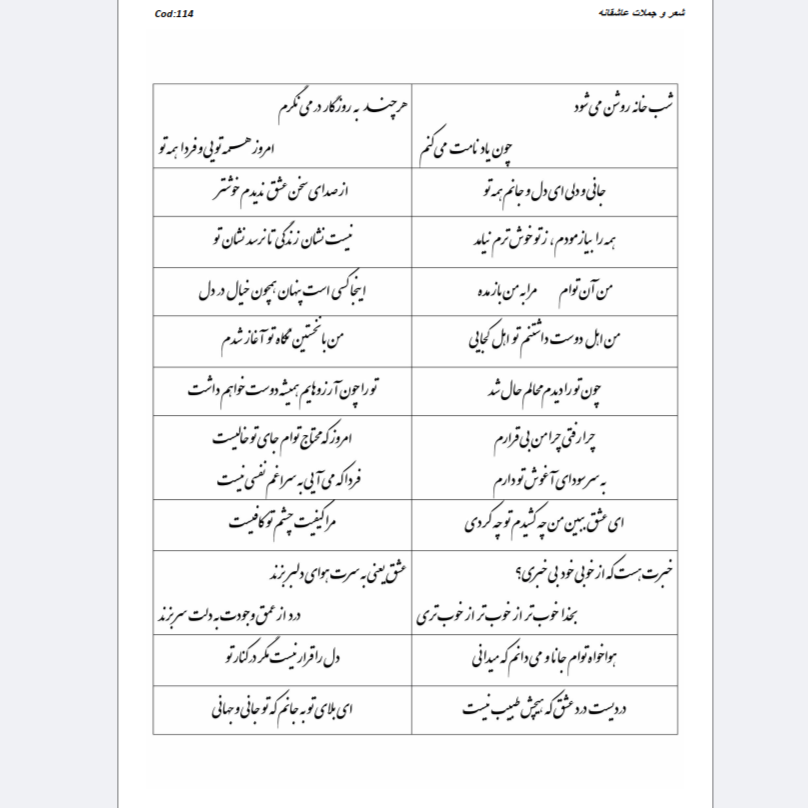 شعر و جملات عاشقانه
Cod:114
شب خانه روشن می‌شود
چون یاد نامت می‌کنم
هر چند به روزگار در می نگرم
امروز همه تویی و فردا همه تو
جانی و دلی ای دل و جانم همه تو
از صدای سخن عشق ندیدم خوشتر
همه را بیازمودم، ز تو خوش ترم نیامد
نیست نشان زندگی تا نرسد نشان تو
من آن توام مرا به من باز مده
اینجا کسی است پنهان همچون خیال در دل
من اهل دوست داشتنم تو اهل کجایی
من با نخستین نگاه تو آغاز شدم
چون تو را دیدم محالم حال شد
تو را چون آرزوهایم همیشه دوست خواهم داشت
چرا رفتی چرا من بی قرارم
به سر سودای آغوش تو دارم
امروز که محتاج توام جای تو خالیست
فردا که می آیی به سراغم نفسی نیست
ای عشق ببین من چه کشیدم تو چه کردی
مرا کیفیت چشم تو کافیست
خبرت هست که از خوبی خود بی خبری؟
بخدا خوب تر از خوب تر از خوب تری
عشق یعنی به سرت هوای دلبر بزند
درد از عمق وجودت به دلت سر بزند
هواخواه توام جانا و می دانم که میدانی
دل را قرار نیست مگر در کنار تو
دردیست درد عشق که هیچش طبیب نیست
ای بلای تو به جانم که تو جانی و جهانی